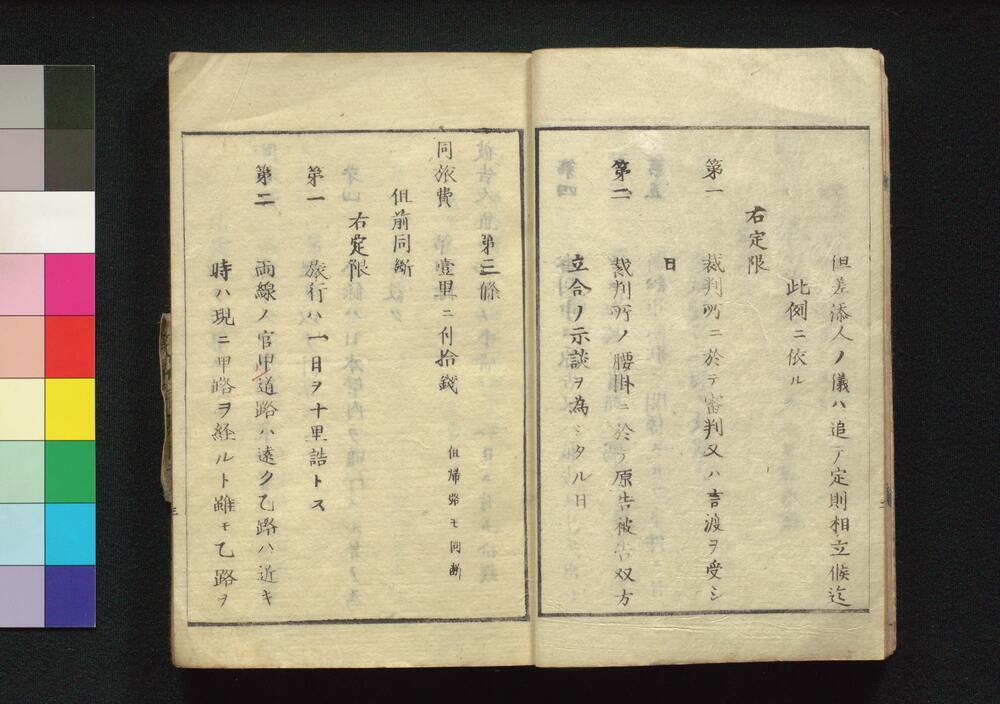 但差添人ノ儀ハ追テ定則相立候迄
此例ニ依ル
右定限
第一 裁判所ニ於テ審判又ハ言渡ヲ受シ
日
第二 裁判所ノ腰掛ニ於テ原告被告双方
立合ノ示談ヲ為シタル日
第三條
同旅費 壹里ニ付拾錢 但帰路モ同断
但前同断
右定限
第一 旅行ハ一日ヲ十里詰トス
第二 両線ノ官甲道路ハ遠ク乙路ハ近キ
時ハ現ニ甲路ヲ経ルト雖モ乙路ヲ